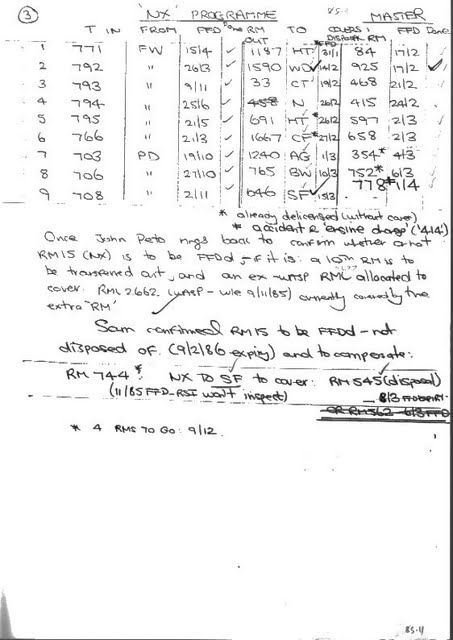 ③ "NX" PROGRAMME 85-4 MASTER
T IN FROM FFD Done RM OUT TO FFD COVERS: DISPOSAL RM FFD Done
1 771 FW 15/4 ✓ 1187 HT 31/1 84 17/2
2 792 " 26/3 ✓ 1590 WD 14/2 925 17/2 ✓
3 793 " 9/11 ✓ 33 CT 19/2 468 21/2
4 794 " 25/6 ✓ 458 N 26/2 415 24/2
5 795 " 21/5 ✓ 691 HT* 26/2 597 2/3
6 766 " 21/3 ✓ 1667 CF* 27/2 658 2/3
7 703 PD 19/10 ✓ 1240 AG 1/3 354* 4/3
8 706 " 27/10 ✓ 765 BW 10/3 752* 6/3
9 708 " 2/11 ✓ 646 SF ✓ 15/3 778* 1/4
* already delicensed (without cover)
* accident & 'engine change' ('414')
Once John Peto rings back to confirm whether or not
RM15 (NX) is to be FFDd - if it is: a 10th RM is to
be transferred out, and an ex-WASP RML allocated to
cover. RML 2662 (WASP - w/e 9/11/85) currently covered by the
extra "RM"
Sam confirmed RM15 to be FFDd - not
disposed of. (9/2/86 expiry) and to compensate:
RM 744* NX TO SF to cover: RM 545 (disposal)
(11/85 FFD - RSI won't inspect) 8/3 FFD EXPIRY.
OR RM562 6/3 FFD
* 4 RMS TO GO: 9/12.
85-4